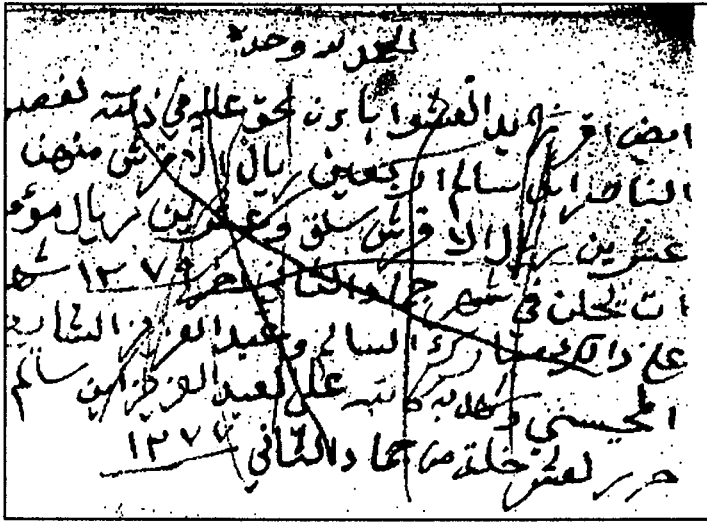 الحمد لله وحده
ايضا اقر زيد العشوا بأن بحق عليه في ذمته
الناصر ابن سالم اربعين ريال الاقرش منهن
عشرين ريال الاقرش سلف وعشرين ريال
ات يحلن في شهر جماد الثاني اخر ١٢٧٩ شهد
على ذالك مبارك السالم وعبد العزيز
وشهد به كاتبه علي العبد العزيز ابن سالم
حرر لعشر خلت من جماد الثاني ١٢٧٧